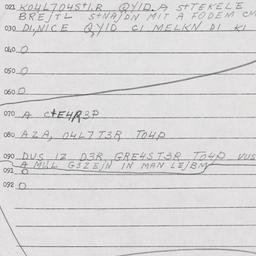 021 KO4L7O4S+I.R QYID.A S+TEKELE
BRE/TL S+NA/DN MIT A FODEM
030 DI,NICE QYID CI MELKN DI KI
040 O
050 O
060 O
070 A C+E4R3P
080 AZA, O4L7 T3R TO4P
090 DUS IZ D3R GRE4ST3R TO4P VUS
A MUL G3ZE/N IN MAN LE/BM
091 O
092 O